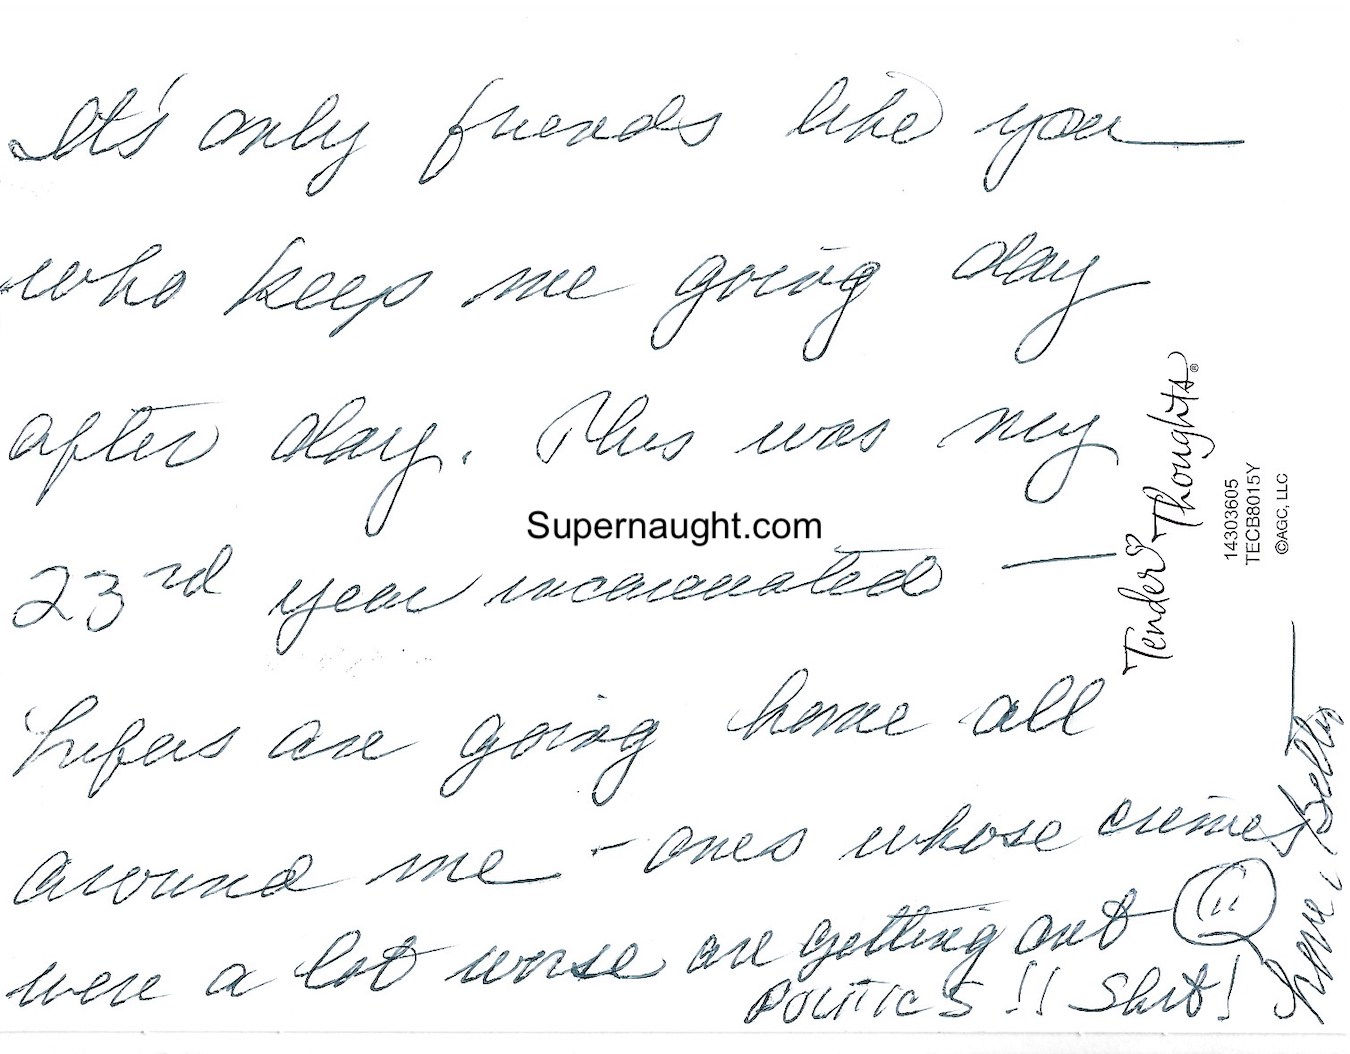 It's only friends like you
who keep me going day
after day. This was my
23rd year incarcerated —
Lifers are going home all
around me - ones whose crimes
were a lot worse are getting out
POLITICS !! Shit!
Love, Betty
Supernaught.com
Tender Thoughts®
14303605
TECB8015Y
©AGC, LLC